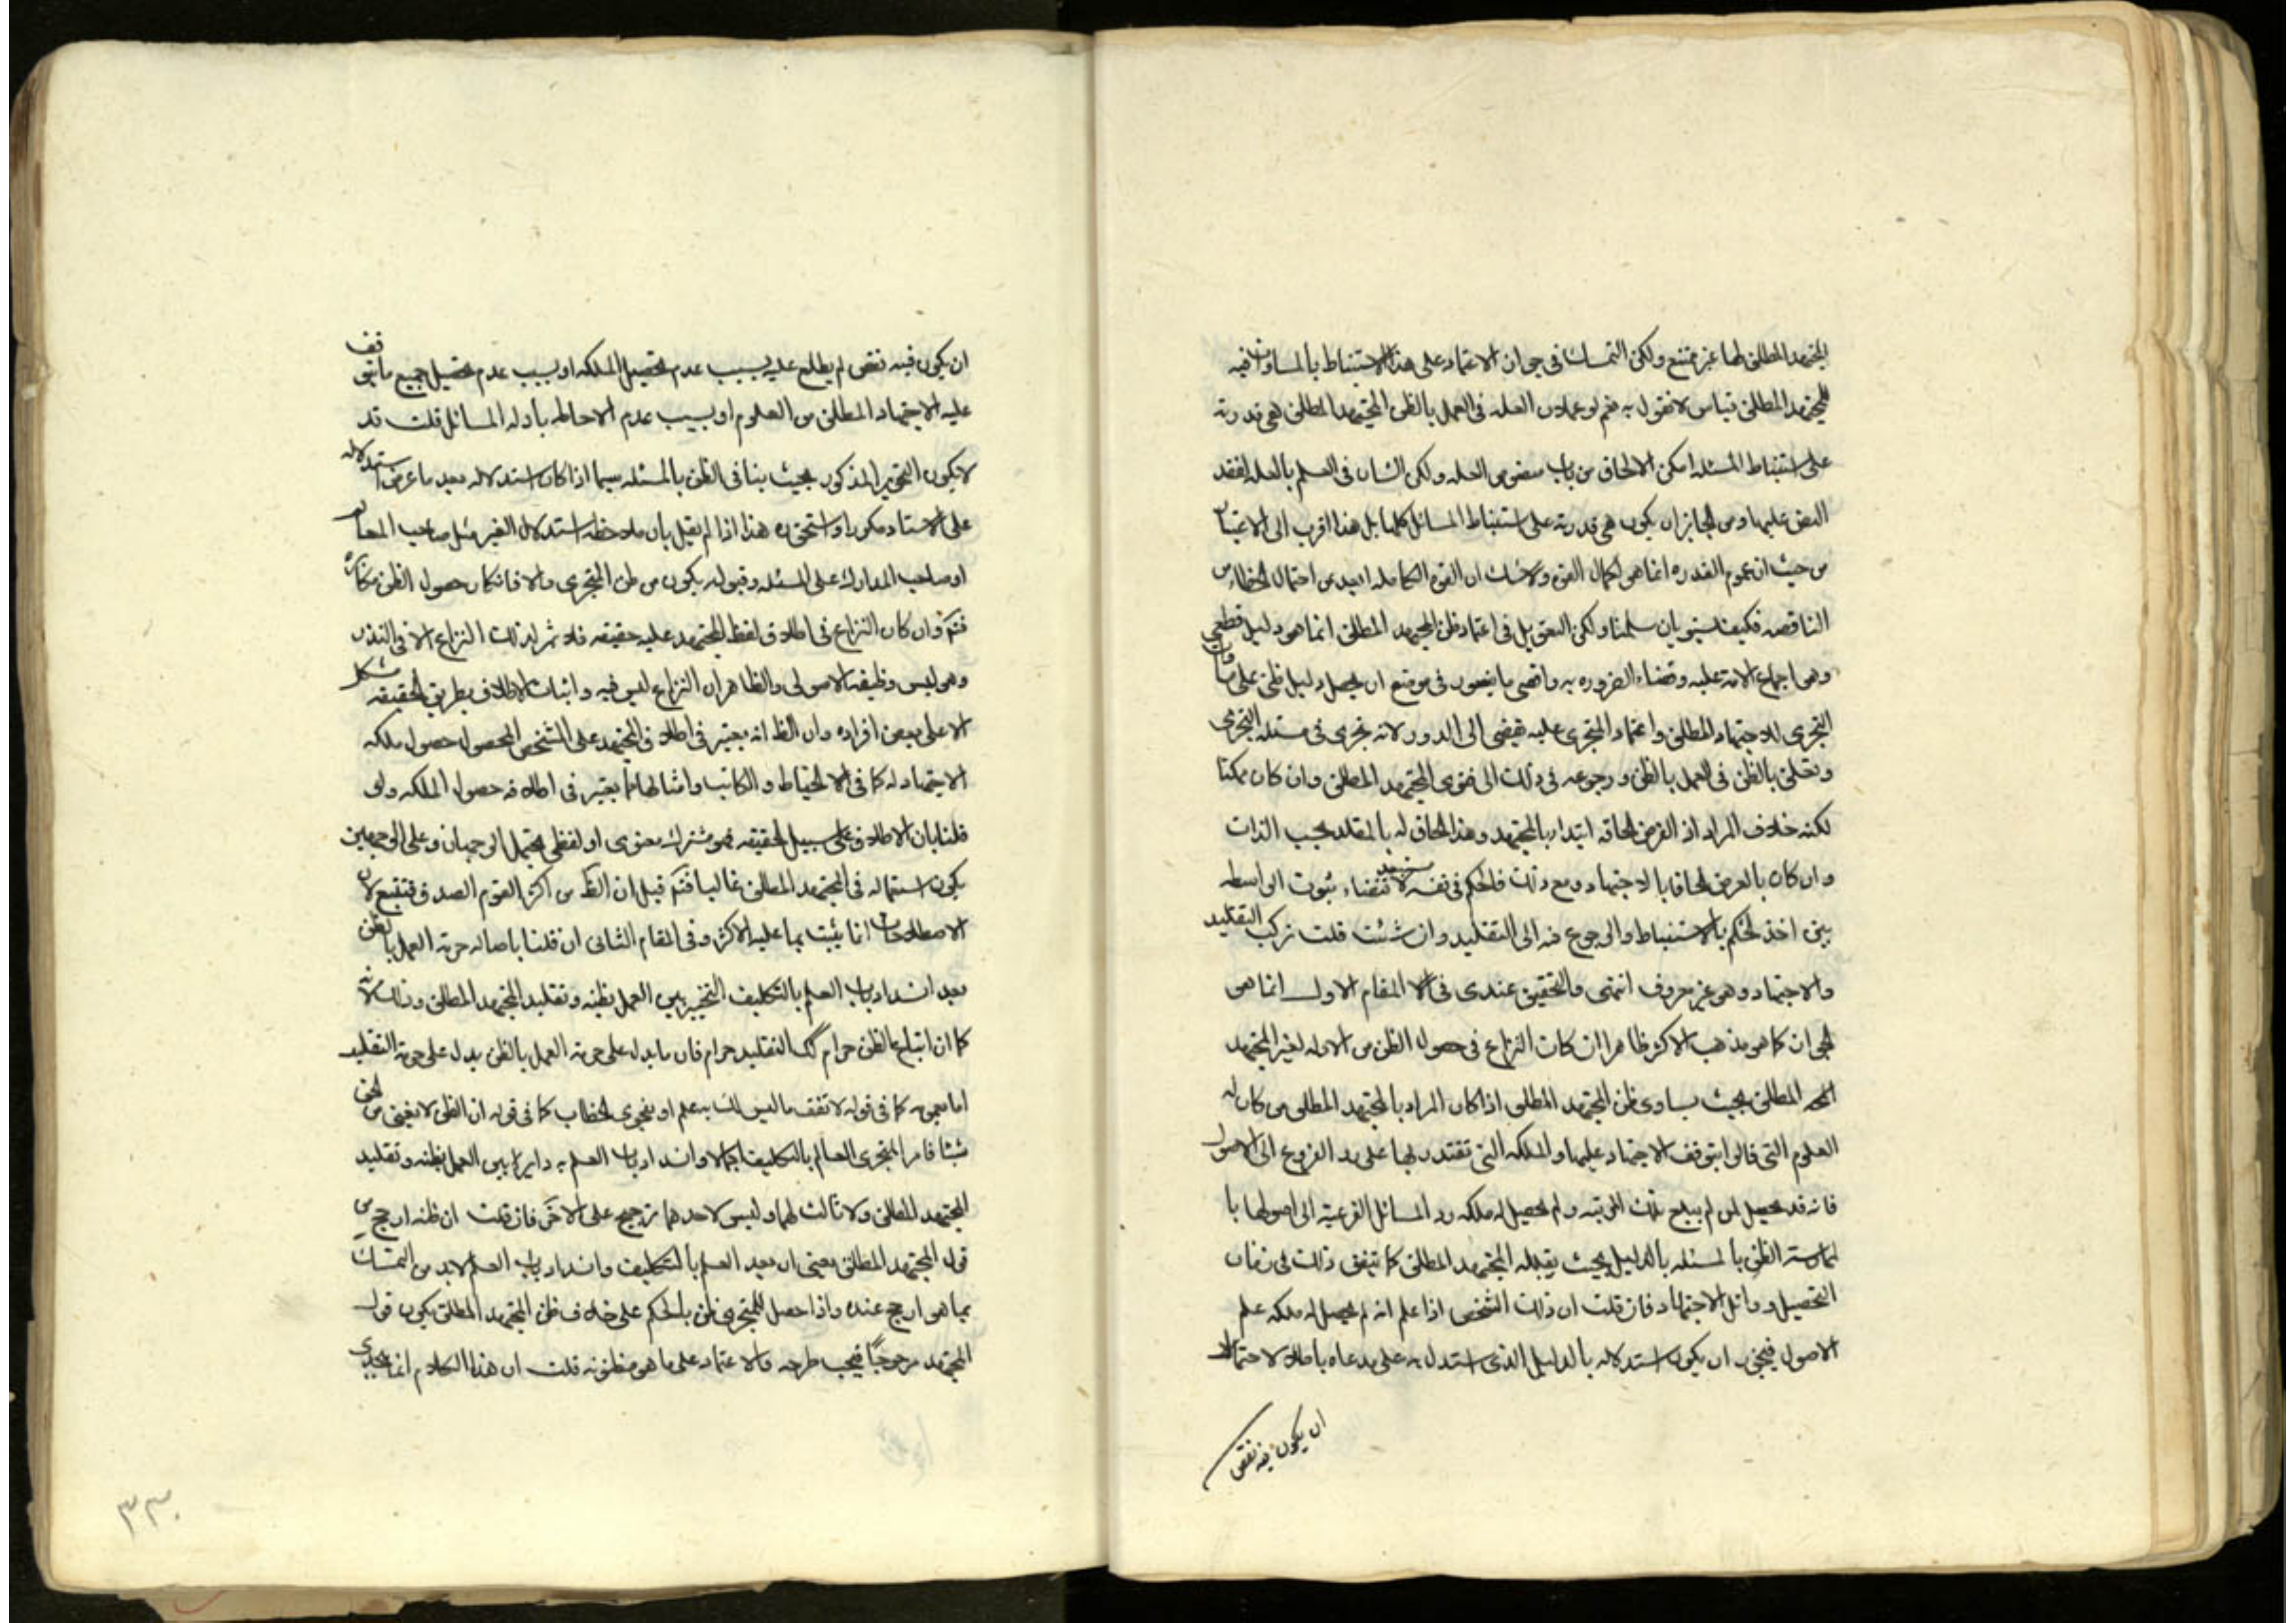 المجتهد المطلق لها غير ممتنع ولكن التمسك في جواز الاعتماد على هذا الاستنباط بالمساوات فيه
للمجتهد المطلق قياس لا نقول به نعم لو علم ان العله في العمل بالظن المجتهد المطلق هي قدرته
على استنباط المسئله امكن الالحاق من باب منصوص العله ولكن الشان في العلم بالعله لفقد
النص عليها ومن الجايز ان يكون هي قدرته على استنباط المسائل كلها بل هذا اقرب الى الاعتبار
من حيث ان عموم القدره انما هو لكمال القوه ولا شك ان القوه الكامله ابعد من احتمال الخطاء من
الناقصه فكيف يستويان سلمنا ولكن التعويل في اعتماد ظن المجتهد المطلق انما هو دليل قطعي
وهو اجماع الامه عليه وقضاء الضروره به واقصى ما يتصور في موضع ان يحصل دليل ظني على مساوات
التجزي للاجتهاد المطلق واعتماد المتجزي عليه يفضي الى الدور لانه تجزى في مسئله التجزي
وتعلق بالظن في العمل بالظن ورجوعه في ذلك الى فتوى المجتهد المطلق وان كان ممكنا
لكنه خلاف المراد اذ الفرض الحاقه ابتداء بالمجتهد وهذا الحاق له بالمقلد بحسب الذات
وان كان بالعرض الحاقا بالاجتهاد ومع ذلك فالحكم في نفسه مستبعد لاقتضاء ثبوت الواسطه
بين اخذ الحكم بالاستنباط والرجوع فيه الى التقليد وان شئت قلت تركب التقليد
والاجتهاد وهو غير معروف انتهى والتحقيق عندي في المقام الاول انما هو
الجواز كما هو مذهب الاكثر ظاهرا ان كان النزاع في حصول الظن من الادله لغير المجتهد
المطلق بحيث يساوى ظن المجتهد المطلق اذا كان المراد بالمجتهد المطلق من كان له
العلوم التي قالوا بتوقف الاجتهاد عليها والملكه التي تقتدر بها على رد الفروع الى الاصول
فانه قد يحصل لمن لم يبلغ تلك المرتبه ولم يحصل له ملكه رد المسائل الفرعيه الى اصولها با
لممارسته الظن بالمسئله بالدليل بحيث يقبله المجتهد المطلق كما يتفق ذلك في زمان
التحصيل واوائل الاجتهاد فان قلت ان ذلك الشخص اذا علم انه لم يحصل له ملكه علم
الاصول فيجوز ان يكون استدلاله بالدليل الذي استدل به على مدعاه باطلا لاحتمال
ان يكون فيه نقص
ان يكون فيه نقص لم يطلع عليه بسبب عدم تحصيل الملكه او بسبب عدم تحصيل جميع ما يتوقف
عليه الاجتهاد المطلق من العلوم او بسبب عدم الاحاطه بادله المسائل قلت قد
لا يكون التجويز المذكور بحيث ينافي الظن بالمسئله سيما اذا كان استدلاله بعد ما عرض استدلاله
على الاستاد مكررا واستحسنه هذا اذا لم نقل بان ملاحظه استدلال الغير مثل صاحب المعالم
او صاحب المدارك على المسئله وقبوله يكون من ظن المتجزي والا فانكار حصول الظن مكابره
فتم وان كان النزاع في اطلاق لفظ المجتهد عليه حقيقه فلا ثمر لذلك النزاع الا في النذر
وهو ليس وظيفه الاصولى والظاهر ان النزاع ليس فيه واثبات الاطلاق بطريق الحقيقه مشكل
الا على بعض افراده وان الظ انه يعتبر في اطلاق المجتهد على الشخص المحصول حصول ملكه
الاجتهاد له كما في الخياط والكاتب وامثالهما يعتبر في اطلاقه حصول الملكه ولو
قلنا بان الاطلاق على سبيل الحقيقه فهو مشترك معنوى او لفظى يحتمل الوجهان وعلى الوجهين
يكون استعماله في المجتهد المطلق غالبا فتم قيل ان الظ من اكثر القوم الصدق فتتبع لان
الاصطلاحات انما يثبت بما عليه الاكثر وفي المقام الثاني ان قلنا باصاله حرمه العمل بالظن
بعد انسداد باب العلم بالتكليف التخيير بين العمل بظنه وتقليد المجتهد المطلق وذلك لانه
كما ان اتباع الظن حرام كك التقليد حرام فان ما يدل على حرمه العمل بالظن يدل على حرمه التقليد
اما بعمومه كما في قوله لا تقف ما ليس لك به علم او بفحوى الخطاب كما في قوله ان الظن لا يغني من الحق
شيئا فامر المتجزي العالم بالتكليف اجمالا وانسداد باب العلم به داير بين العمل بظنه وتقليد
المجتهد المطلق ولا ثالث لهما وليس لاحدهما ترجيح على الاخر فان قلت ان ظنه ارجح من
قول المجتهد المطلق بمعنى ان بعد العلم بالتكليف وانسداد باب العلم لا بد من التمسك
بما هو ارجح عنده واذا حصل للمتجزى ظن بالحكم على خلاف ظن المجتهد المطلق يكون قول
المجتهد مرجوحا فيجب طرحه والاعتماد على ما هو مظنونه قلت ان هذا الكلام انما يجدى
٣٣٠